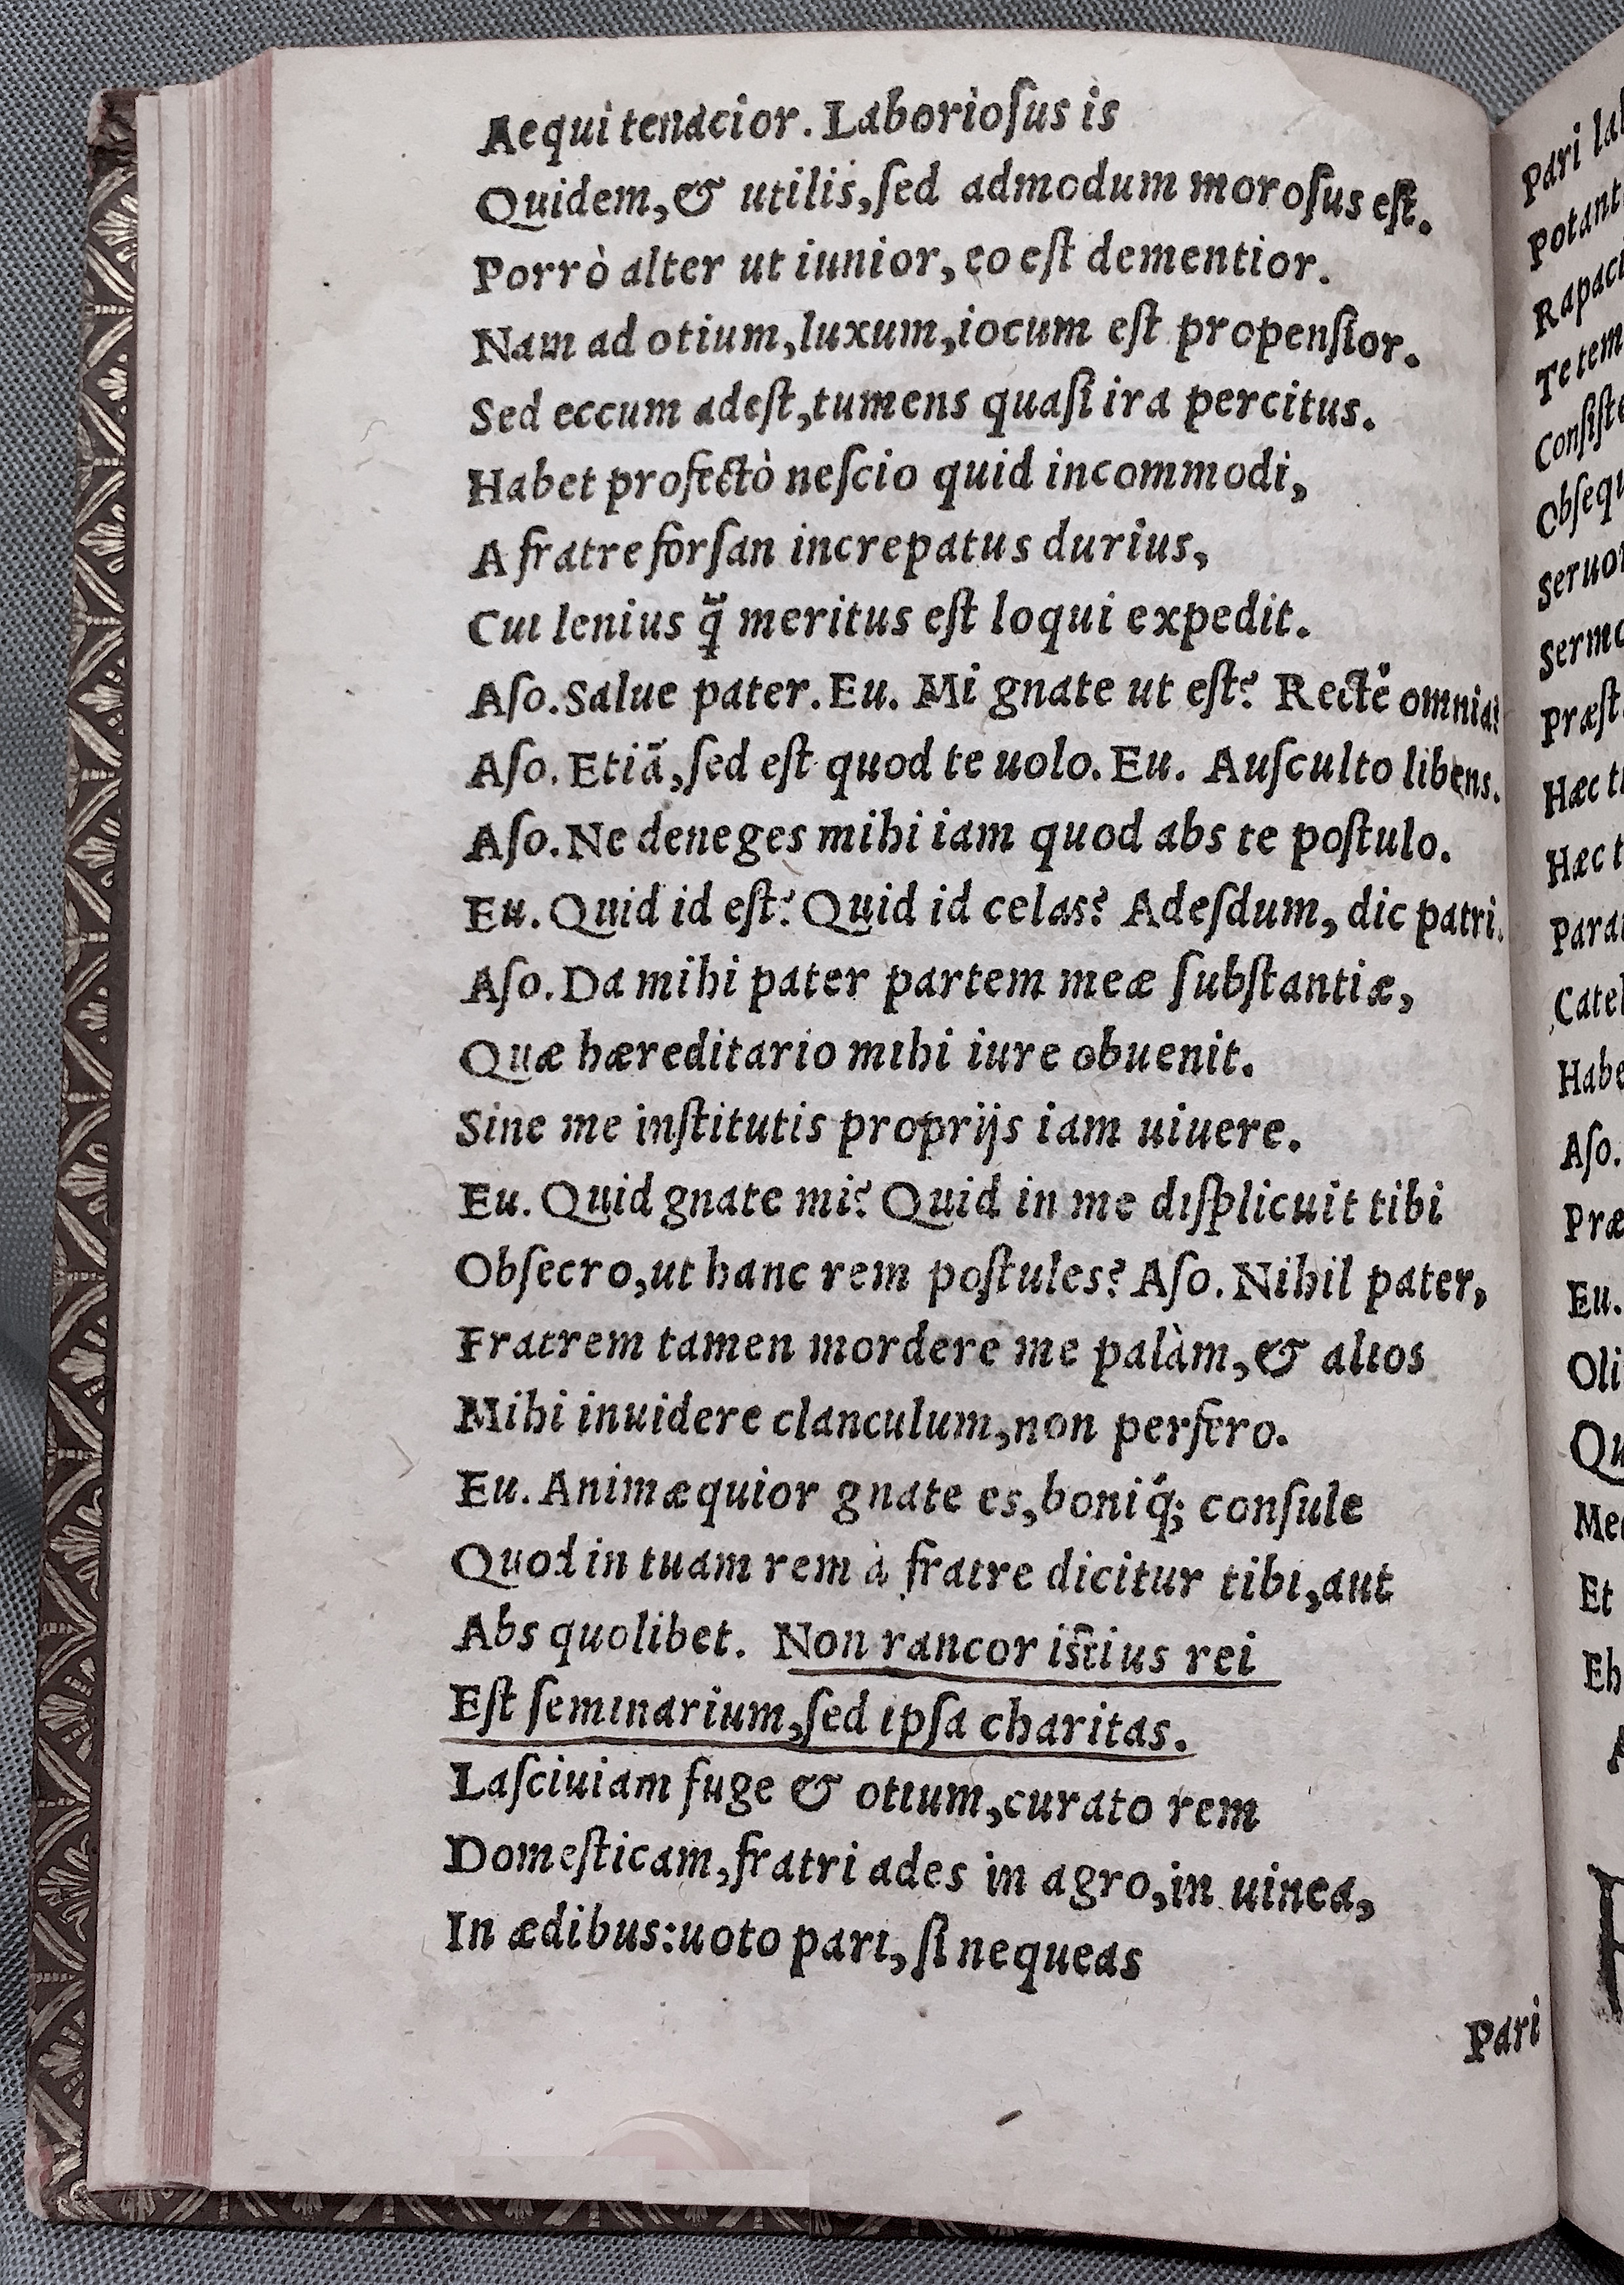 Aequi tenacior. Laborioſus is
Quidem, & utilis, ſed admodum moroſus eſt.
Porrò alter ut iunior, eo eſt dementior.
Nam ad otium, luxum, iocum eſt propenſior.
Sed eccum adeſt, tumens quaſi ira percitus.
Habet profectò neſcio quid incommodi,
A fratre forſan increpatus durius,
Cui lenius q̃ meritus eſt loqui expedit.
Aſo. Salue pater. Eu. Mi gnate ut eſt? Rectè omnia?
Aſo. Etiã, ſed eſt quod te uolo. Eu. Auſculto libens.
Aſo. Ne deneges mihi iam quod abs te poſtulo.
Eu. Quid id eſt? Quid id celas? Adeſdum, dic patri.
Aſo. Da mihi pater partem meæ ſubſtantiæ,
Quæ hæreditario mihi iure obuenit.
Sine me inſtitutis proprijs iam uiuere.
Eu. Quid gnate mi? Quid in me diſplicuit tibi
Obſecro, ut hanc rem poſtules? Aſo. Nihil pater,
Fratrem tamen mordere me palàm, & alios
Mihi inuidere clanculum, non perfero.
Eu. Animæquior gnate es, boniq́; conſule
Quod in tuam rem à fratre dicitur tibi, aut
Abs quolibet. Non rancor iſtius rei
Eſt ſeminarium, ſed ipſa charitas.
Laſciuiam fuge & otium, curato rem
Domeſticam, fratri ades in agro, in uinea,
In ædibus: uoto pari, ſi nequeas
Pari
Pari
Conſiſte
Hæc
Hæc
Aſo.
Eu.
Et